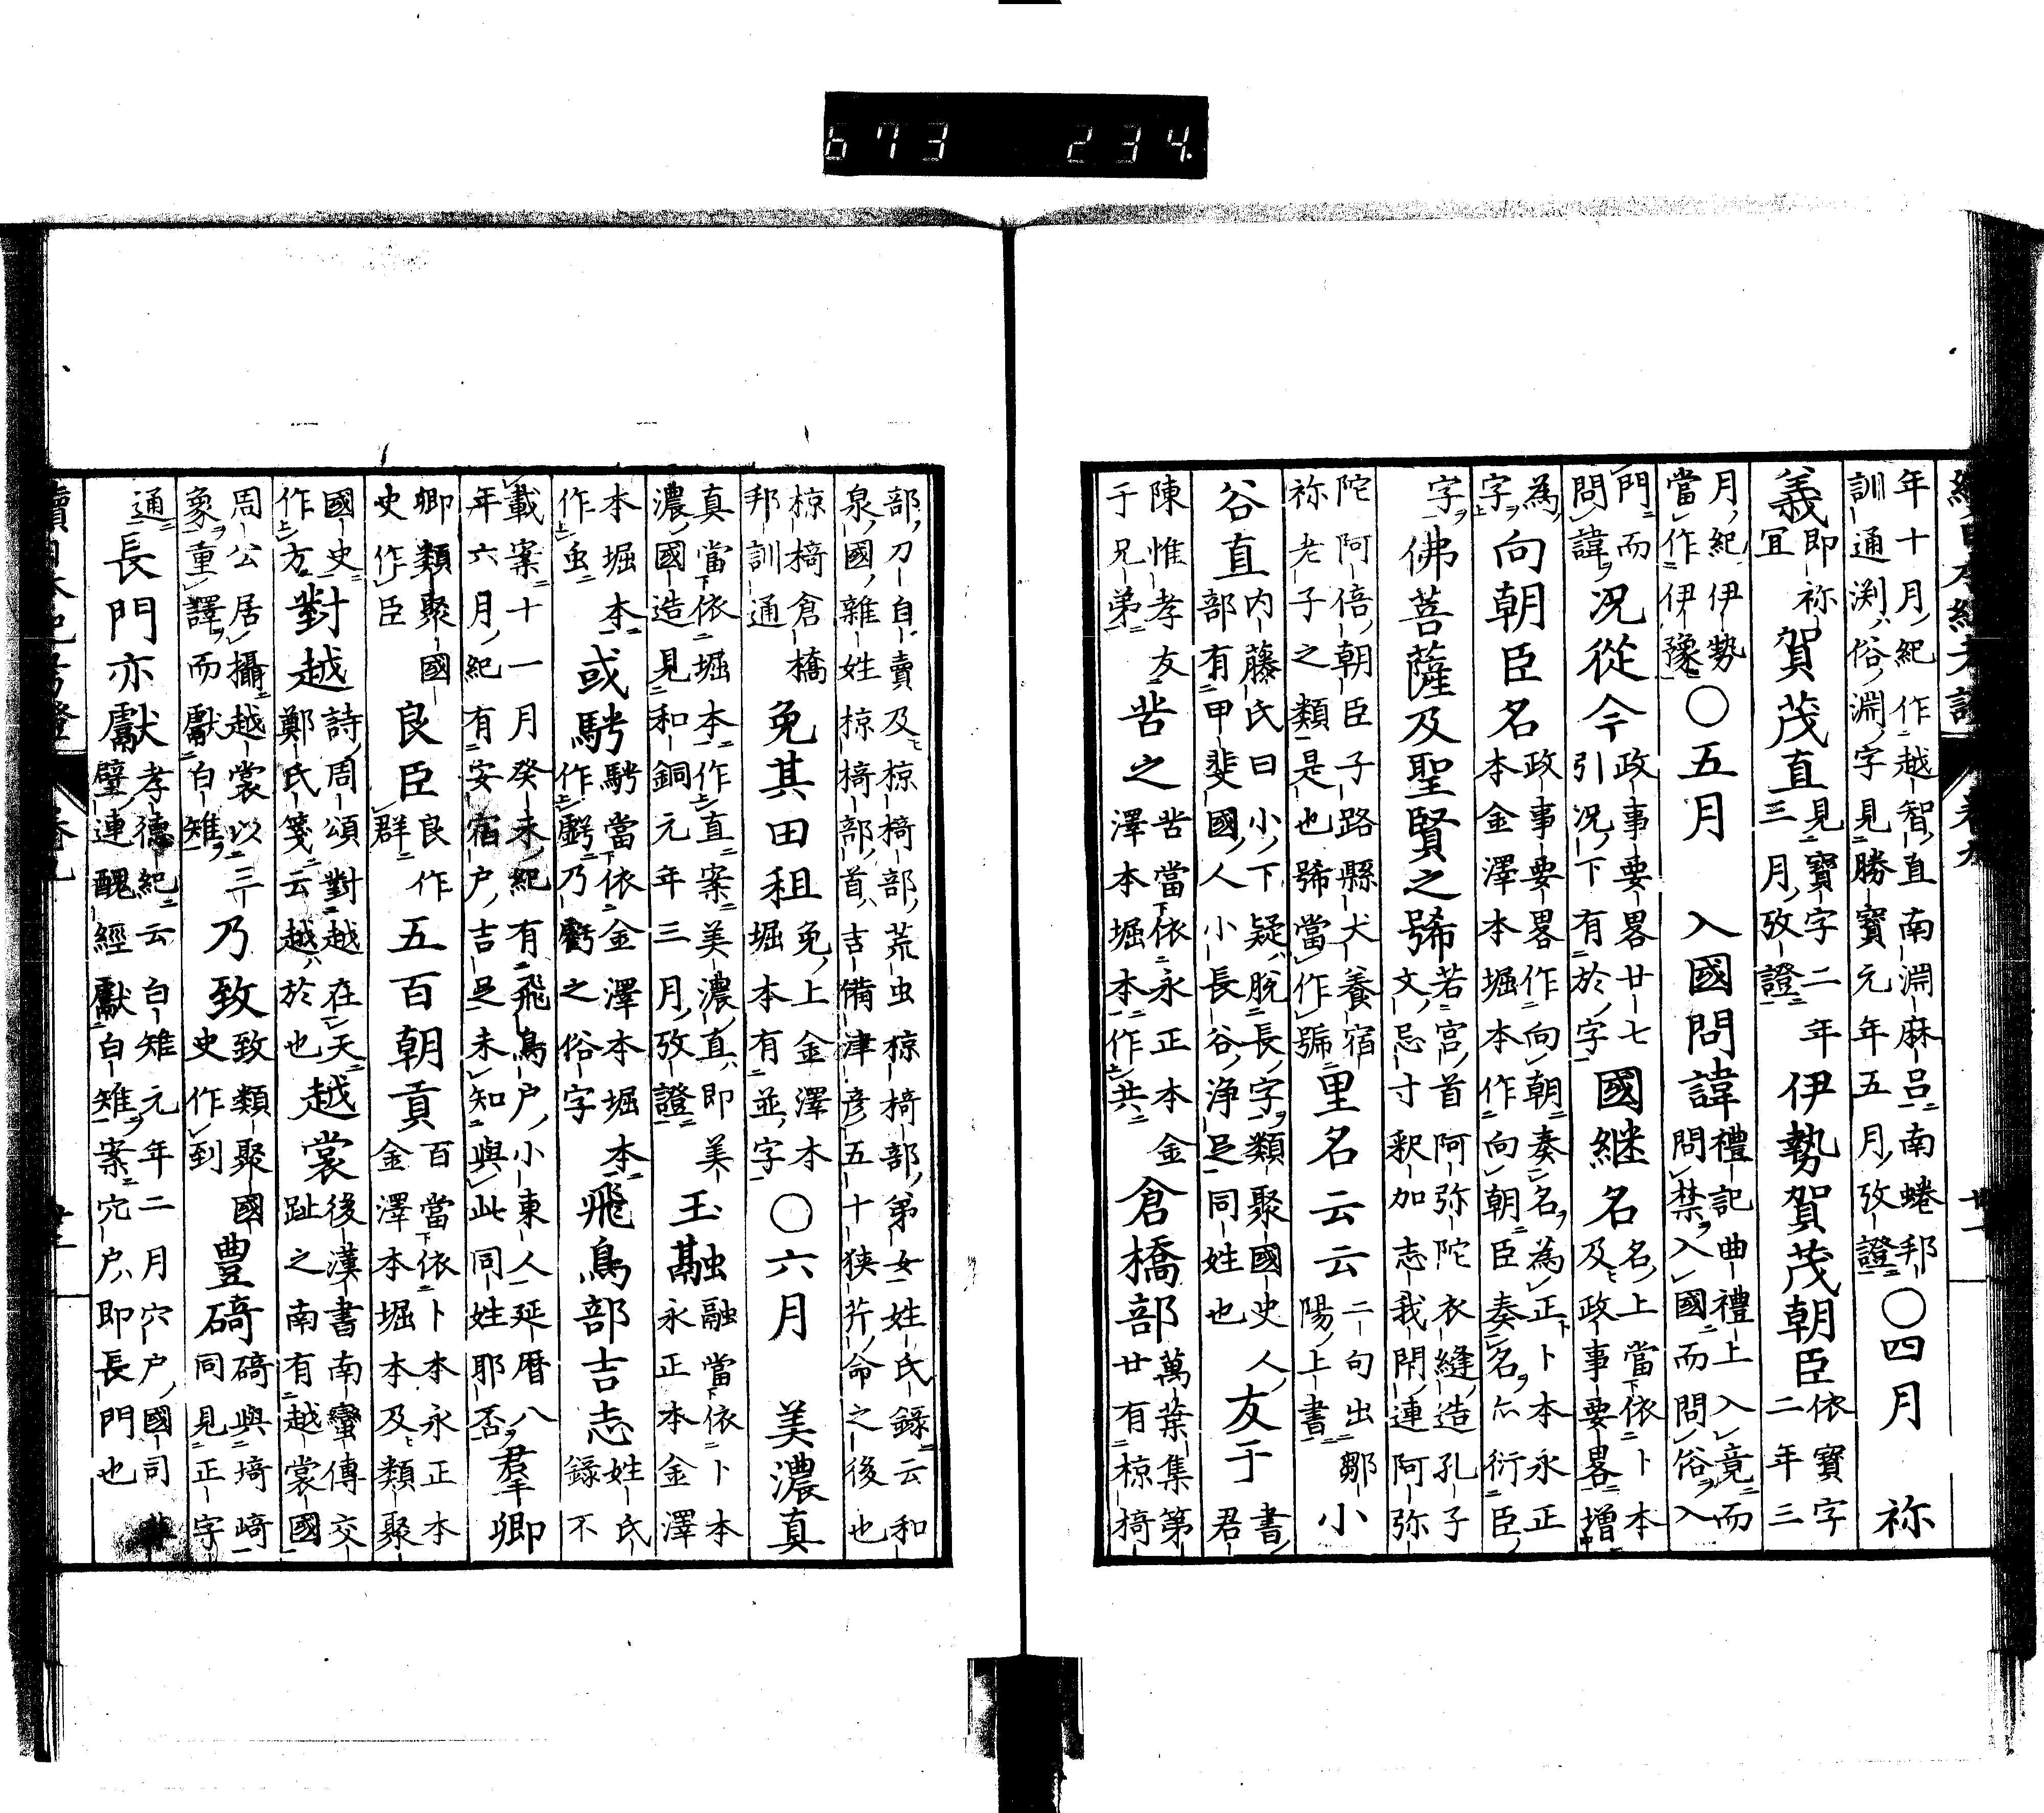 673 234.
年十月紀作越智直南淵麻呂南蜷邦訓通渕俗淵字見勝寳元年五月攷證〇四月 祢
義即祢宜賀茂直見寳字二年三月攷證伊勢賀茂朝臣依寳字二年三
月紀伊勢當作伊豫〇五月 入國問諱禮記曲禮上入竟而問禁入國而問俗入
門而問諱况從今政事要畧廿七引况下有於字國継名名上當依卜本及政事要畧増
為字向朝臣名政事要畧作向朝奏名為正卜本永正本金澤本堀本作向朝臣奏名尒衍臣
字佛菩薩及聖賢之號若宮首阿弥陀衣縫造孔子文忌寸釈加志我閇連阿弥
陀阿倍朝臣子路縣犬養宿祢老子之類是也號當作號里名云云二句出鄒陽上書小
谷直内藤氏曰小下疑脱長字類聚國史人部有甲斐國人小長谷浄足同姓也友于書君
陳惟孝友于兄弟呰之呰當依永正本金澤本堀本作共倉橋部萬葉集第廿有椋椅
部刀自賣及椋椅部荒虫椋椅部弟女姓氏録云和泉國雜姓椋椅部首吉備津彦五十狭芹命之後也
椋椅倉橋邦訓通免其田租免上金澤本堀本有並字〇六月 美濃真
真當依堀本作直案美濃直即美濃國造見和銅元年三月攷證玉融融當依卜本永正本金澤
本堀本作虫或騁騁當依金澤本堀本作虧乃虧之俗字飛鳥部吉志姓氏録不
載案十一月癸未紀有飛鳥戸小東人延暦八年六月紀有安宿戸吉足未知與此同姓耶否羣卿
卿類聚國史作臣良臣良作群五百朝貢百當依卜本永正本金澤本堀本及類聚
國史作方對越詩周頌對越在天鄭氏箋云越於也越裳後漢書南蠻傳交趾之南有越裳國
周公居攝越裳以三象重譯而獻白雉乃致致類聚國史作到豊碕碕與埼﨑同見正字
通長門亦獻孝德紀云白雉元年二月穴戸國司草壁連醜經獻白雉案穴戸即長門也